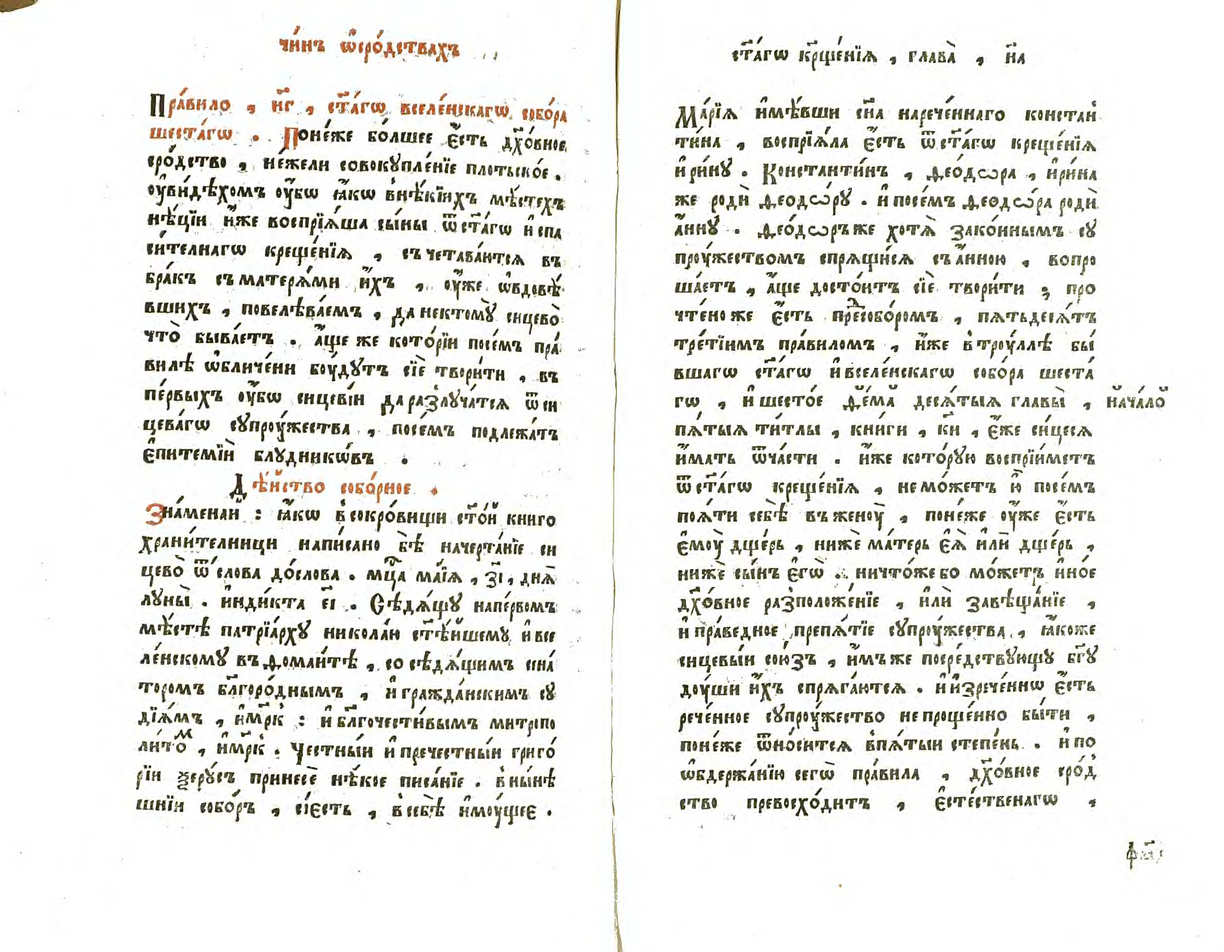 чи́нъ ѡ҆сро́дствахъ
Пра́вило , н҃г , ст҃а́гѡ вселе́нскагѡ собо́ра
шеста́гѡ . Поне́же бо́лшее є҆́сть дх҃о́вное
сро́дство , не́жели совокупле́нїе плотьско́е .
оу҆ви́дѣхомъ оу҆́бѡ ꙗ҆́кѡ внѣ́кїихъ мѣ́стехъ
нѣ́цїи и҆̀же воспрїѧ́ша сы́ны ѿ ст҃а́гѡ и҆ спа
си́телнагѡ креще́нїѧ , съчетава́ютсѧ въ
бра́къ съматерѧ́ми и҆́хъ , оу҆́же ѡ҆вдовѣ́
вшихъ , повелѣва́емъ , да нектому̀ сицево̀
что̀ быва́етъ . а҆́ще же кото́рїи посе́мъ пра́
вилѣ ѡ҆бличе́ни бо́удутъ сїѐ твори́ти , въ
пе́рвыхъ оу҆́бѡ сицеві́и да разлуча́тсѧ ѿ си
цева́гѡ супроу́жества , посе́мъ подлежа́тъ
є҆питемі́и блудникѡ́въ .
Дѣ́йство собо́рное .
Зна́менаи : ꙗ҆́кѡ в сокро́вищи ст҃о́й книго
храни́телници напи́сано бѣ̀ начерта́нїе си
цево̀ ѿ сло́ва до́слова . мц҃а ма́їѧ , з҃і , днѧ̀
луны̀ . и҆нди́кта є҃і . Сѣдѧ́щу напе́рвомъ
мѣ́стѣ патрїа́рху никола́ю ст҃ѣ́йшему и҆ все
ле́нскому въ ѳомаи́тѣ , со сѣдѧ́щимъ сина́
торомъ бл҃горо́днымъ , и҆ гражда́нскимъ су
дїѧ́мъ , и҆́мр҃къ : и҆ бл҃гочести́вымъ митропо
лито́м , и҆́мр҃къ . Че́стныи и҆ пречестны́и григо́
рїи ѯерусъ принесѐ нѣ́кое писа́нїе . в ны́нѣ
шнїи собо́ръ , сїе́сть , в себѣ̀ и҆моу́щее .
ст҃а́гѡ кр҃ще́нїѧ , глава̀ , н҃а
Марі́ѧ и҆мѣ́вши сн҃а нарече́ннаго констан
ти́на , воспрїѧ́ла є҆́сть ѿ ст҃а́гѡ креще́нїѧ
и҆ри́ну . Константи́нъ , ѳео́дѡра , и҆ри́на
же родѝ ѳеодѡ́ру . и҆ посе́мъ ѳеодѡ́ра родѝ
а҆́нну . ѳео́дѡръ же хотѧ̀ зако́ннымъ су
проу́жествомъ спрѧщи́сѧ съ а҆́нною , вопро
ша́етъ , а҆́ще досто́итъ сїѐ твори́ти ; про
чтено́ же є҆́сть пред собо́ромъ , пѧтьдесѧ́тъ
тре́тїимъ пра́виломъ , и҆̀же в трꙋ́ллѣ бы́
вшагѡ ст҃а́гѡ и҆ вселе́нскагѡ собо́ра шеста́
гѡ , и҆ шесто́е ѳе́ма десѧ́тыѧ главы̀ , нача́ло
пѧ́тыѧ ти́тлы , кни́ги , к҃и , є҆́же си́цесѧ
и҆́мать ѿ ча́сти . и҆́же кото́рую воспрїи́метъ
ѿ ст҃а́гѡ креще́нїѧ , не мо́жетъ ю҆̀ посе́мъ
поѧ́ти себѣ̀ въ женоу̀ , поне́же оу҆́же є҆́сть
є҆моу̀ дще́рь , нижѐ ма́терь є҆ѧ̀ и҆лѝ дще́рь ,
нижѐ сы́нъ є҆гѡ̀ . ничто́же бо мо́жетъ и҆но́е
дх҃о́вное разположе́нїе , и҆лѝ завѣща́нїе ,
и҆ пра́ведное препѧ́тїе супроу́жества , ꙗ҆́коже
сицевы́и сою́зъ , и҆́мъ же посре́дствующу бг҃у
до́уши и҆́хъ спрѧга́ютсѧ . и҆ и҆зрече́ннѡ є҆́сть
рече́нное супроу́жество непроще́нно бы́ти ,
поне́же ѿно́ситсѧ в пѧ́тыи сте́пень . и҆ по
ѡ҆бдержа́нїю сегѡ̀ пра́вила , дх҃о́вное сро́д
ство превосхо́дитъ , є҆сте́ственагѡ ,